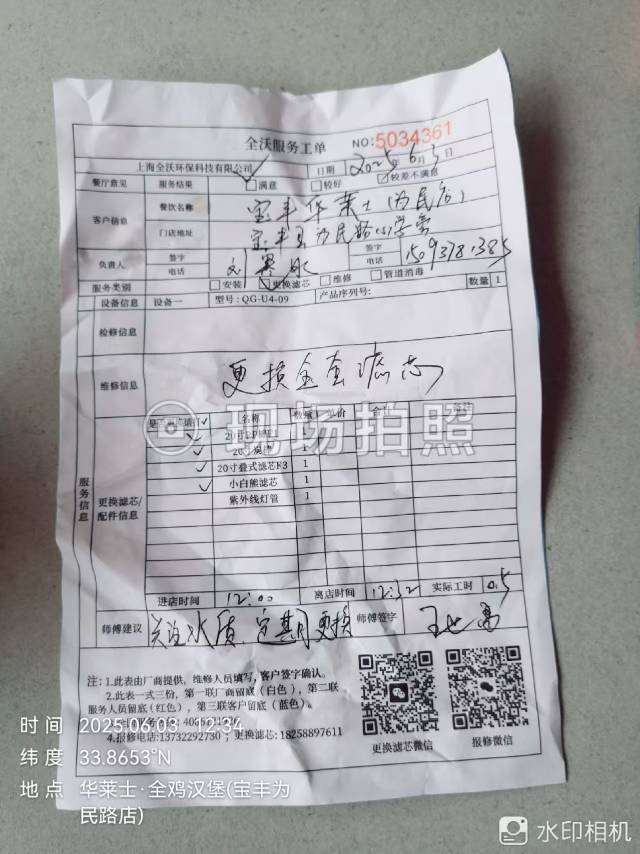 全沃服务工单 NO:5034361
上海全沃环保科技有限公司 日期 2025年6月3日
餐厅意见 服务结果 满意 较好 较差不满意
客户信息 餐饮名称 宝丰华莱士(为民店)
门店地址 宝丰县为民路小学旁
负责人 签字 电话 签字 电话
服务类别 安装 更换滤芯 维修 管道消毒
设备信息 设备一 型号:QG-U4-09 产品序列号: 数量 1
检修信息
维修信息 更换全套滤芯
服务信息 更换滤芯/配件信息
名称 数量 单价
20寸
20寸
20寸叠式滤芯F3 1
小白熊滤芯 1
紫外线灯管 1
进店时间 12:00 离店时间 12:32 实际工时 0.5
师傅建议 关注水质,定期更换 师傅签字
注:1.此表由厂商提供,维修人员填写,客户签字确认。
2.此表一式三份,第一联厂商留底(白色),第二联
服务人员留底(红色),第三联客户留底(蓝色)。
4.报修电话:13732292730;更换滤芯:18258897611
更换滤芯微信 报修微信
现场拍照
时间 2025.06.03 12:34
纬度 33.8653°N
地点 华莱士·全鸡汉堡(宝丰为
民路店)
水印相机